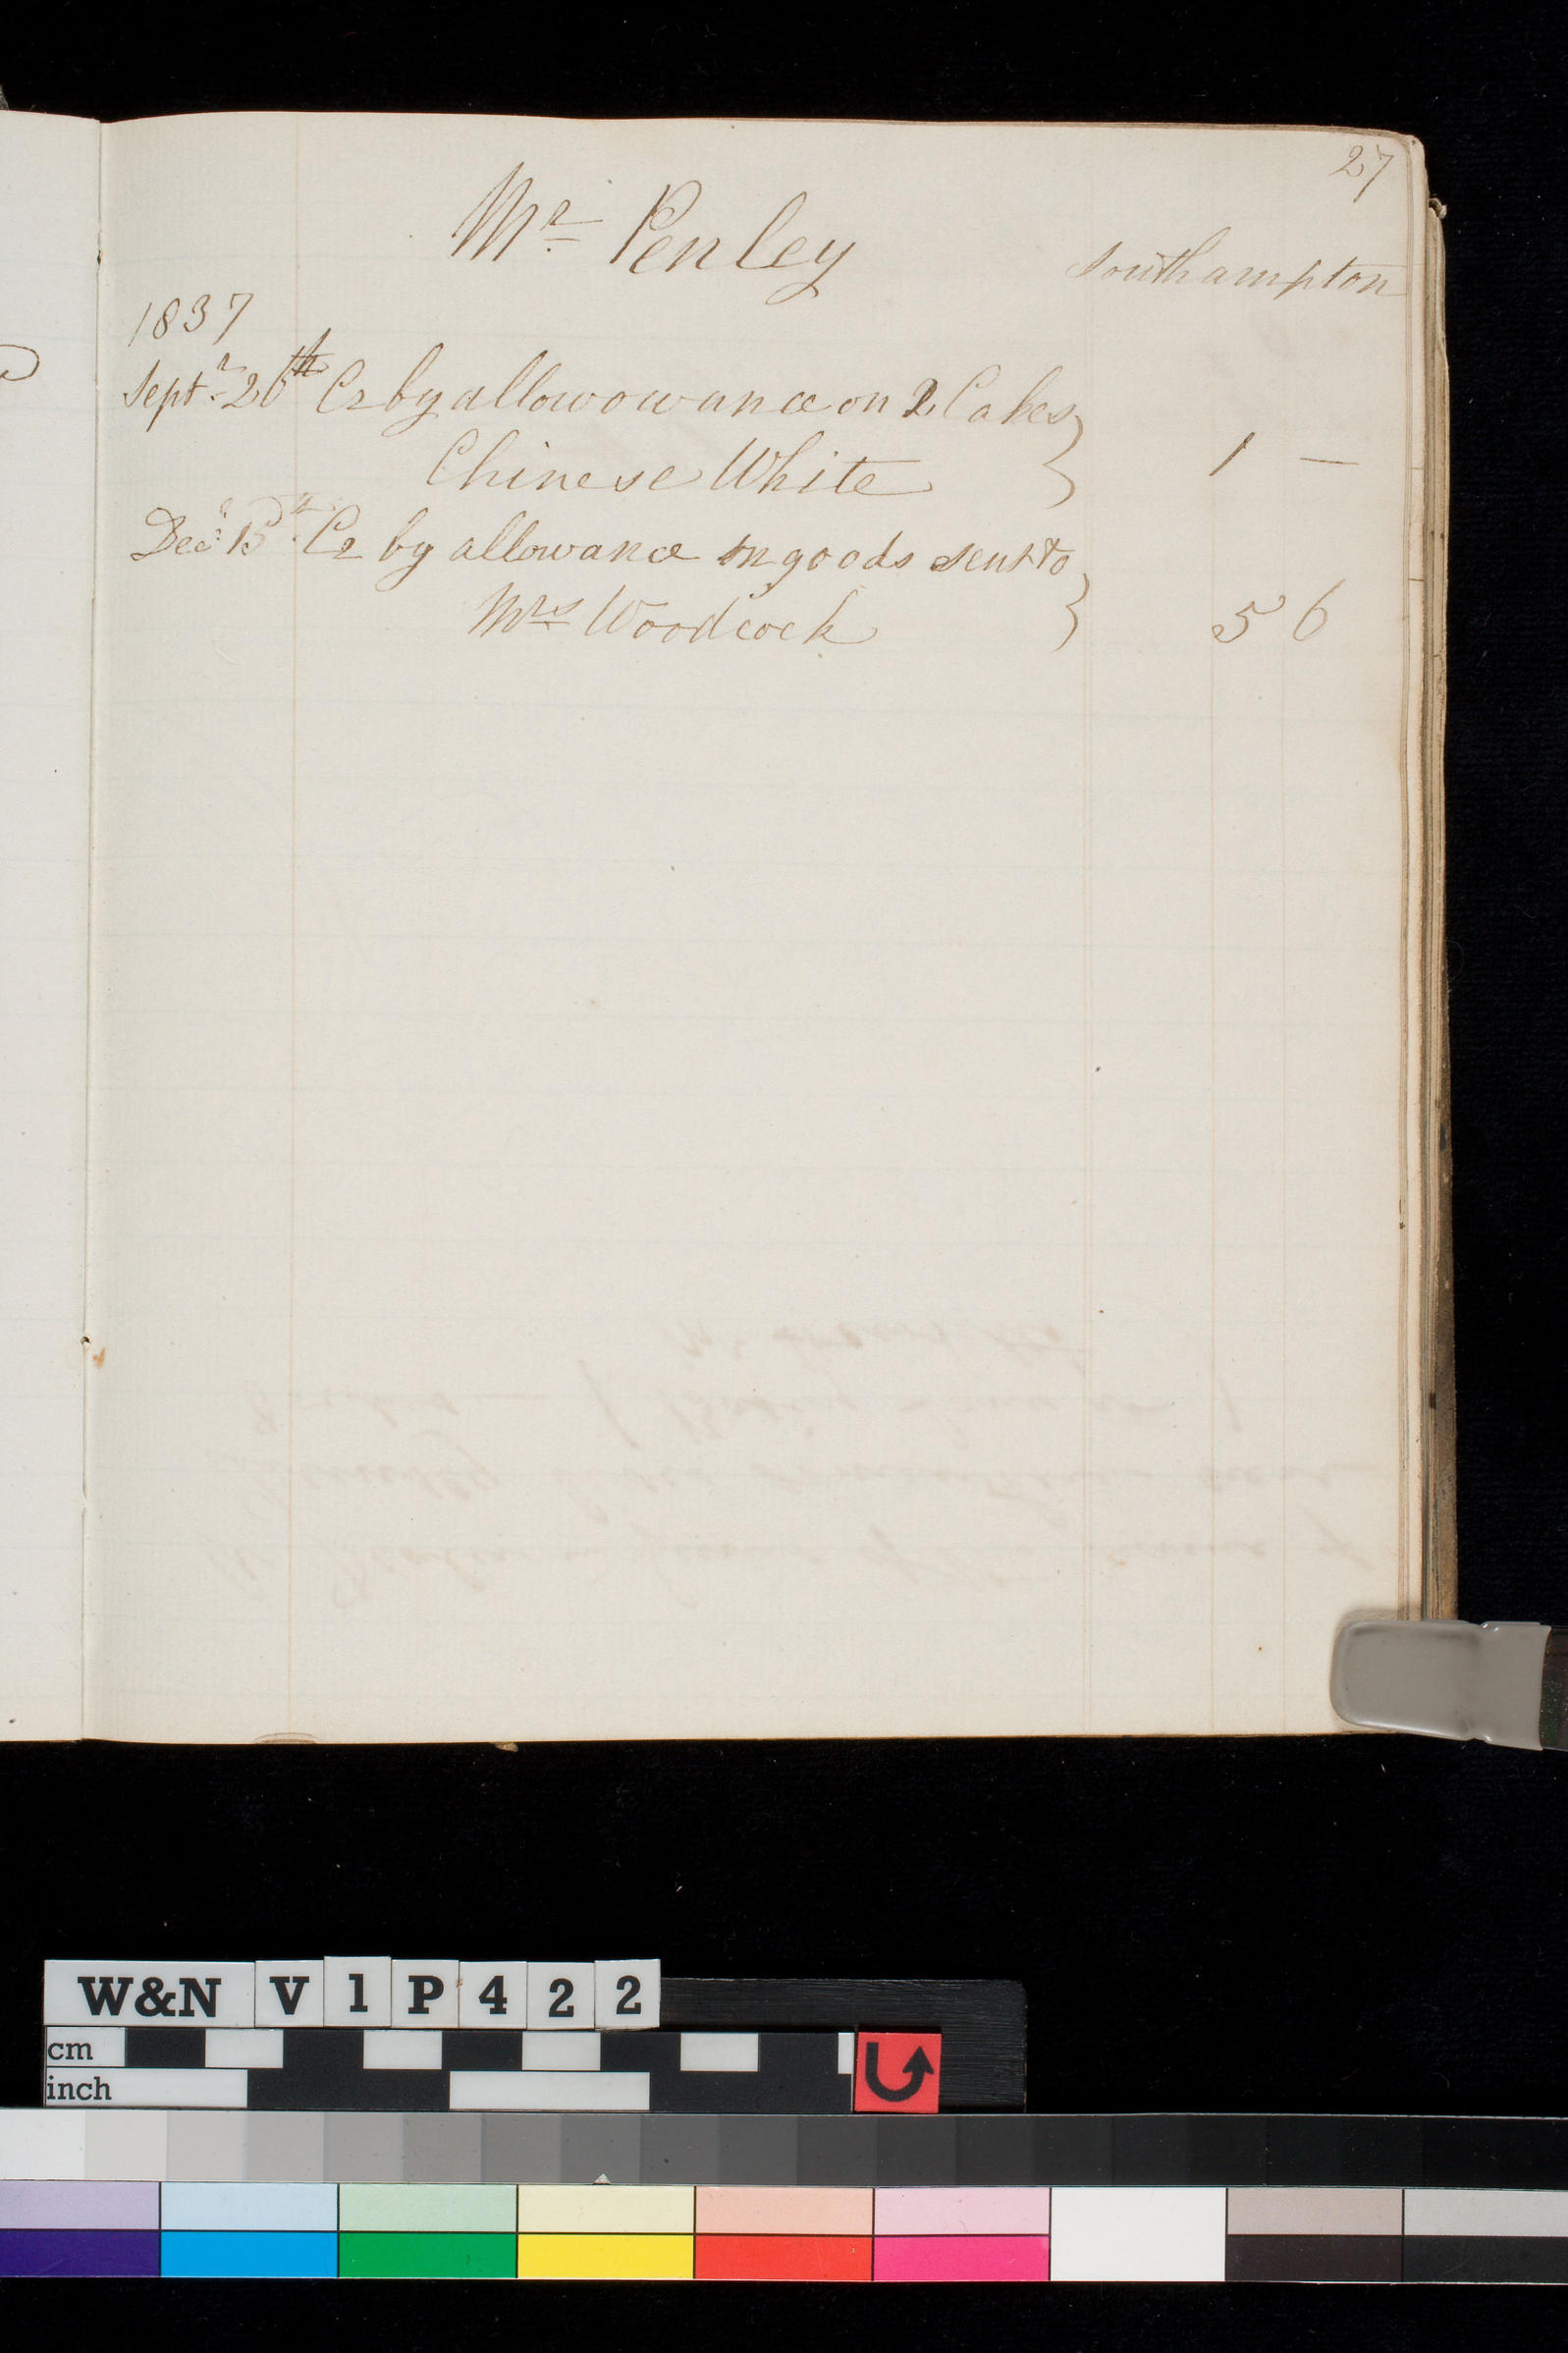 27
Mr Penley
Southampton
1837
Septr 26th Cr by allowowance on 2 Cakes
Chinese White } 1 —
Decr 15th Cr by allowance on goods sent to
Mrs Woodcock } 5 6
W&N V 1 P 4 2 2
cm
inch